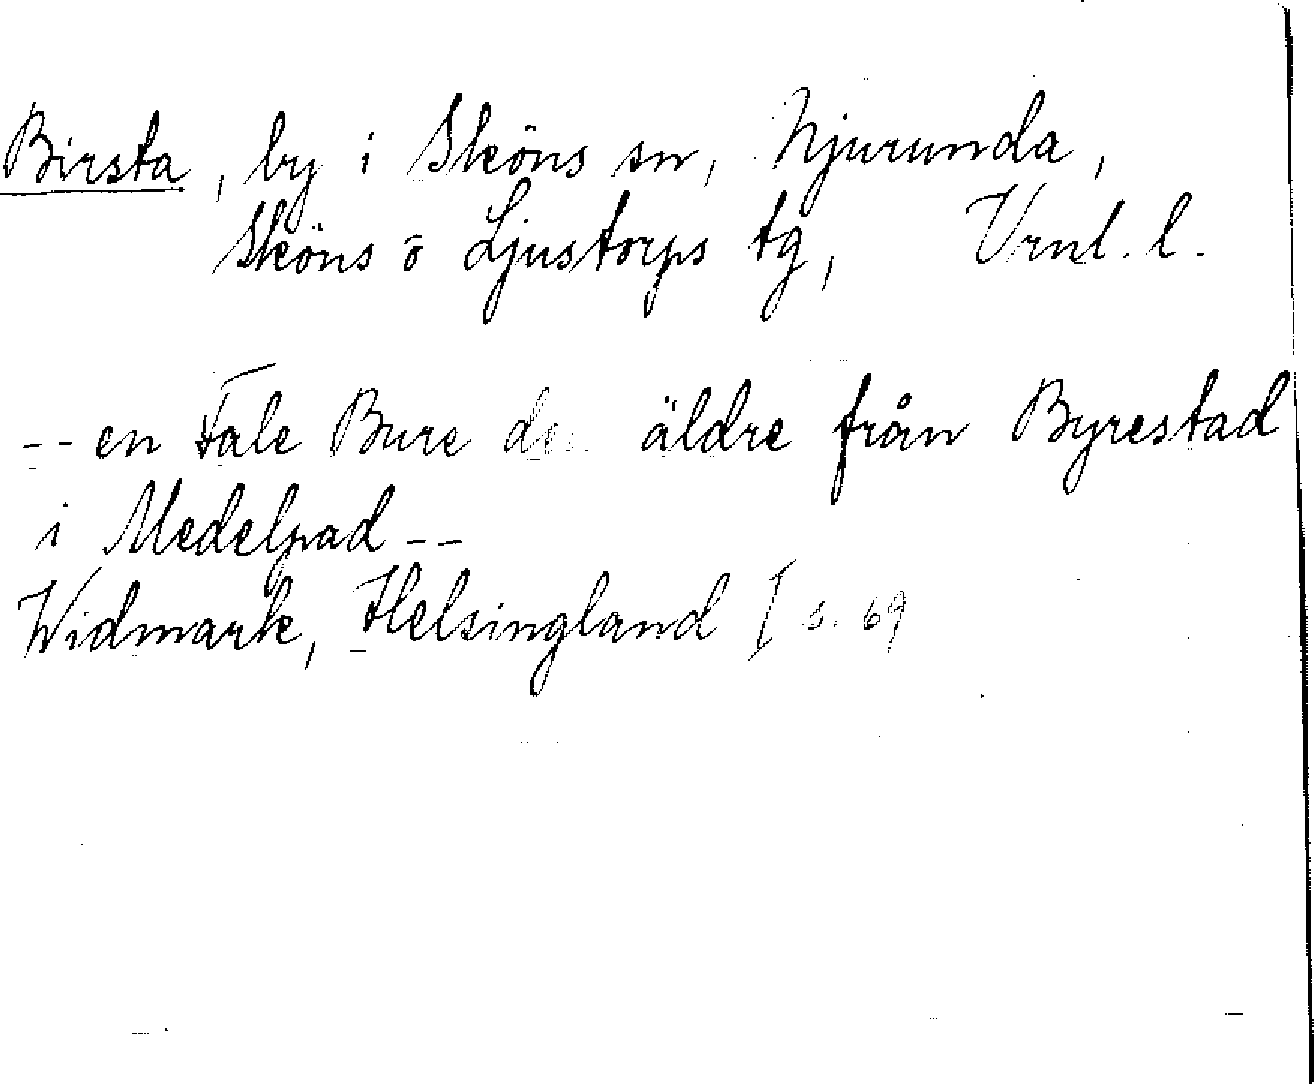 Birsta, by i Sköns sn, Njurunda,
Sköns o Ljustorps tg, Vrnl. l.
-- en Fale Bure den äldre från Byrestad
i Medelpad --
Widmark, Helsingland I s. 69